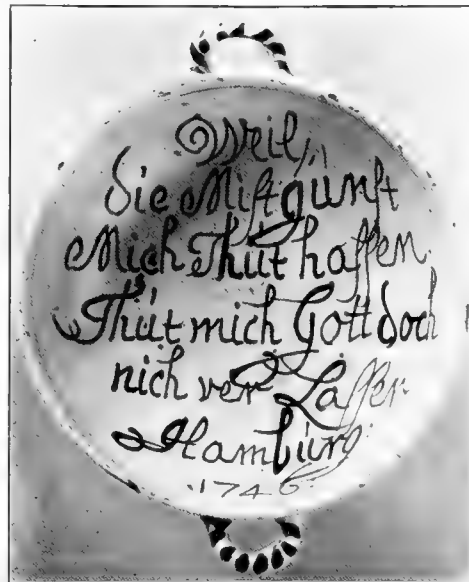 Weil
die Miſtgunſt
Mich Thut haſſen
Thut mich Gott doch
nich ver Laſſen
Hamburg
1746